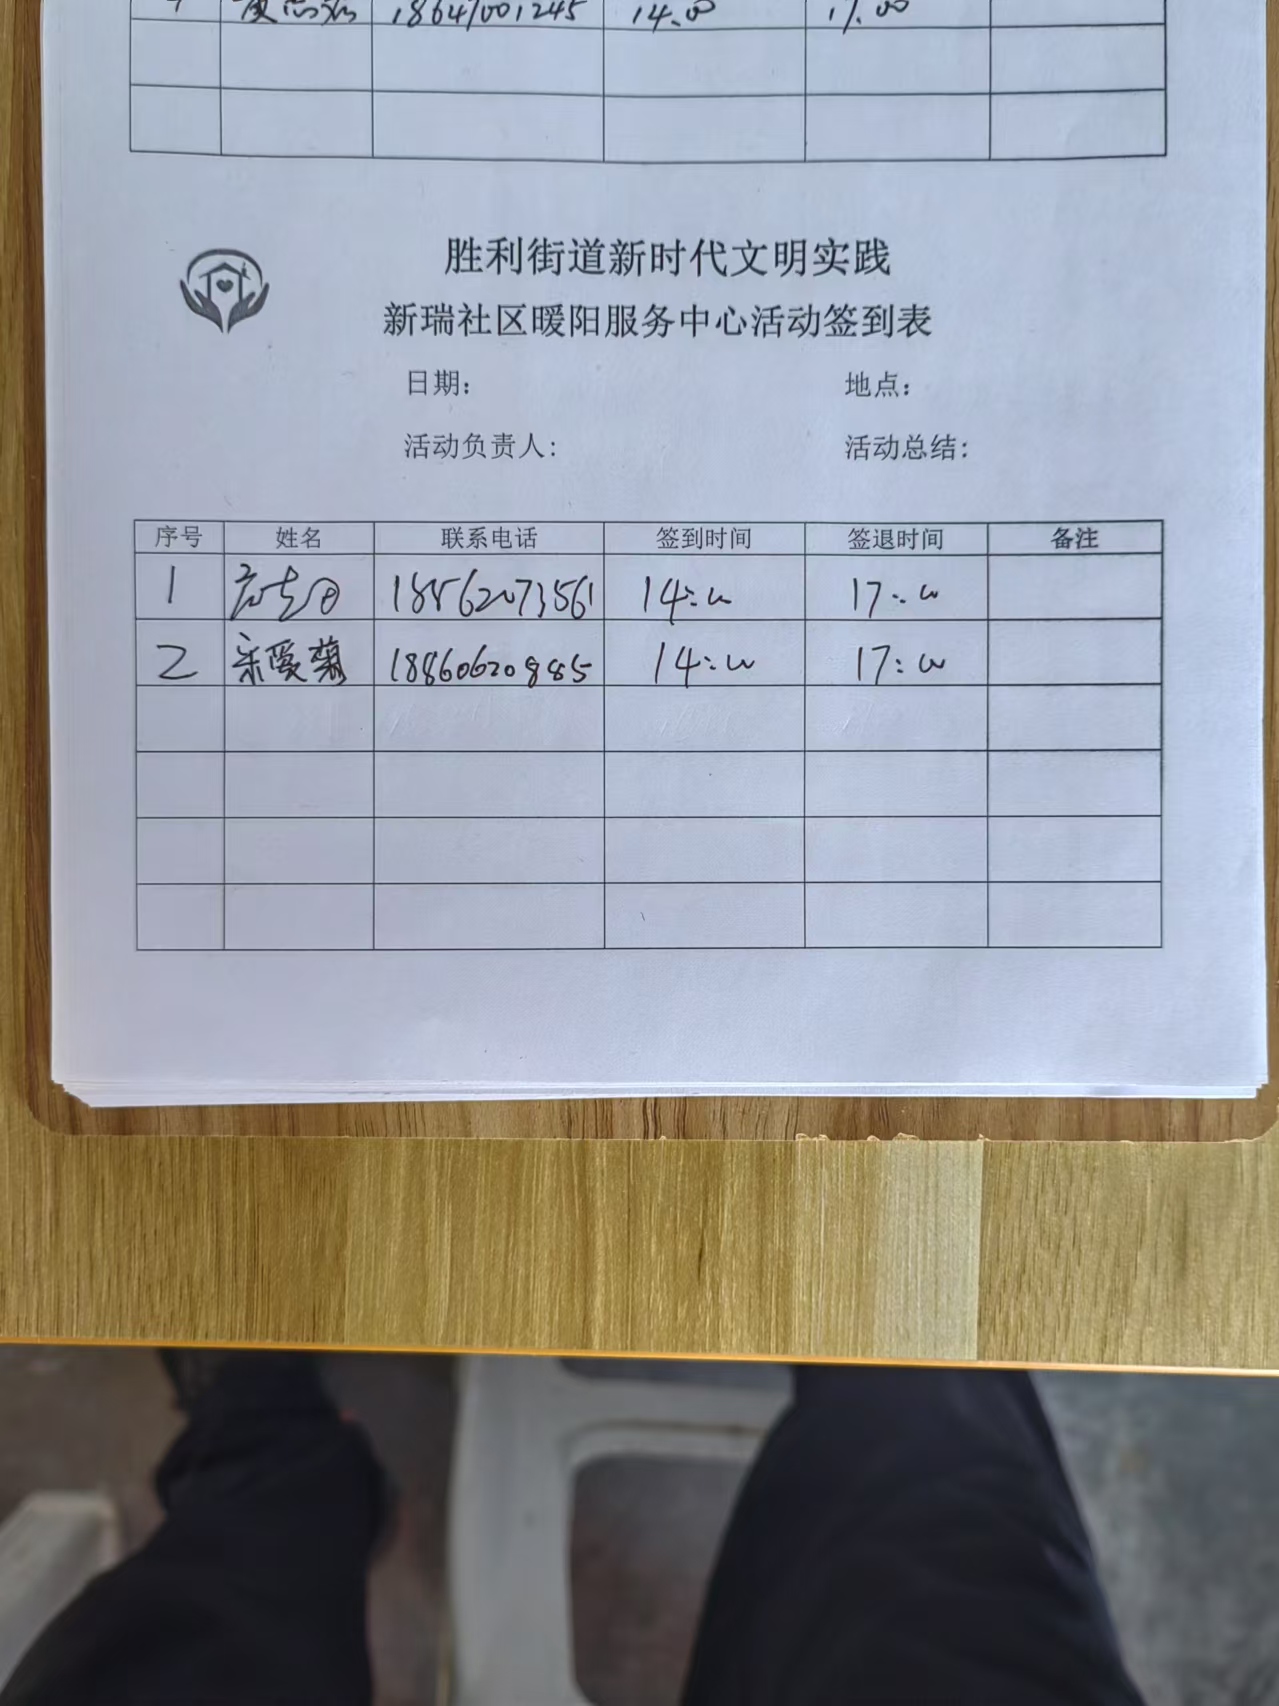 18647001245 14:00 17:00
胜利街道新时代文明实践
新瑞社区暖阳服务中心活动签到表
日期： 地点：
活动负责人： 活动总结：
序号 姓名 联系电话 签到时间 签退时间 备注
1 18562073561 14:00 17:00
2 宋爱菊 18860620885 14:00 17:00